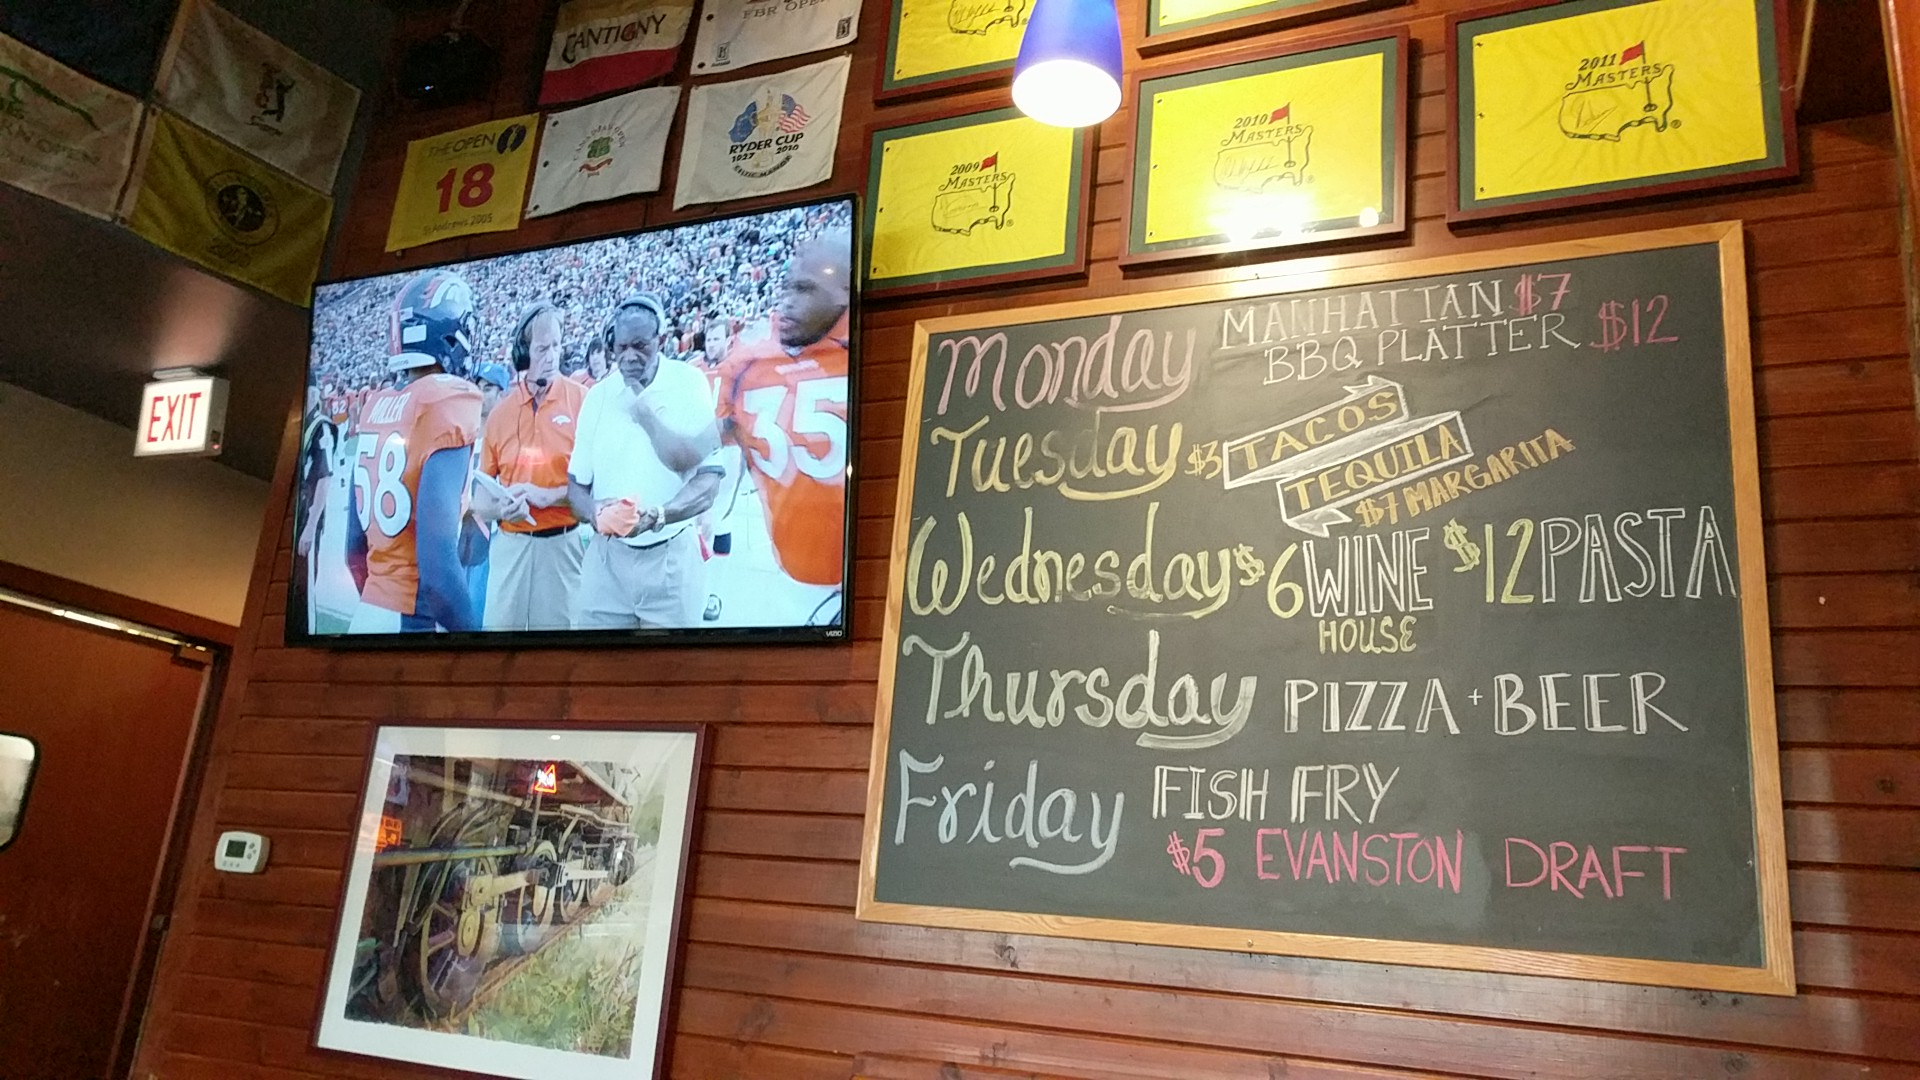 CANTIGNY
THE OPEN
18
St Andrews 2005
RYDER CUP
1927 2010
2009
MASTERS
2010
MASTERS
2011
MASTERS
EXIT
MILLER
58
35
VIZIO
Monday MANHATTAN $7
BBQ PLATTER $12
Tuesday $3 TACOS
TEQUILA
$7 MARGARITA
Wednesday $6 WINE $12 PASTA
HOUSE
Thursday PIZZA + BEER
Friday FISH FRY
$5 EVANSTON DRAFT